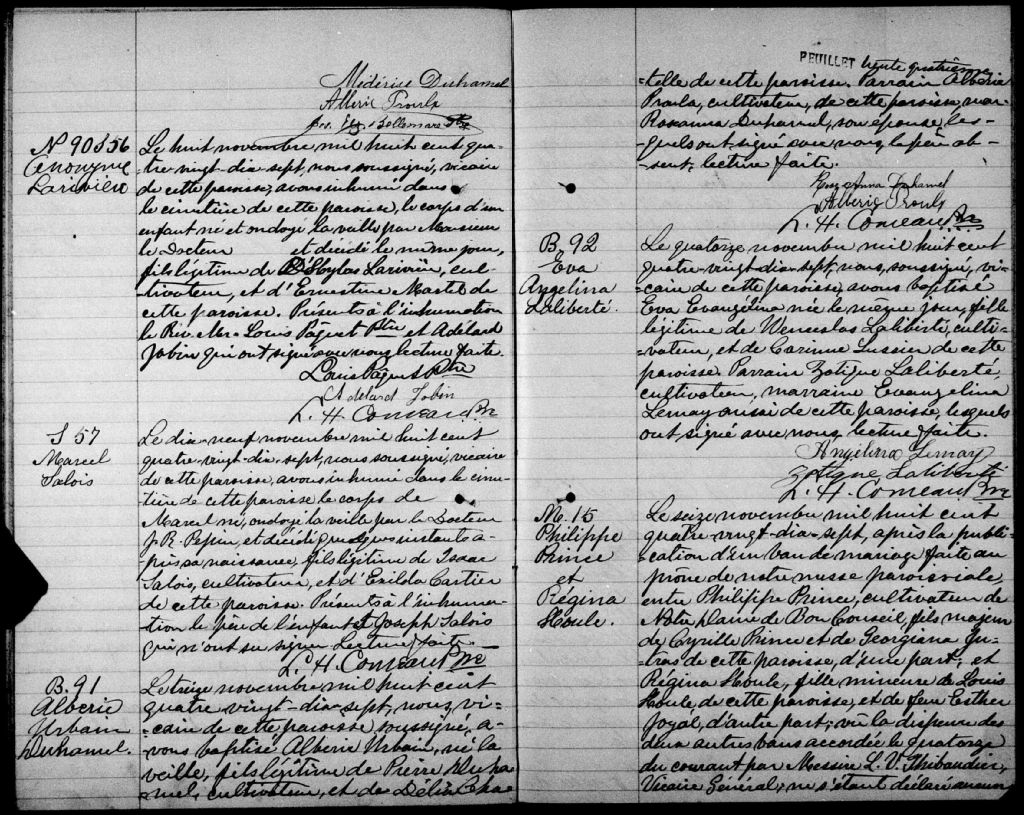 Médéric Duhamel
Alberic Proulx
Bellemare Ptre
N 90 S 56
Anonyme
Larivière
Le huit novembre mil huit cent qua-
-tre-vingt-dix-sept, nous soussigné, vicaire
de cette paroisse, avons inhumé dans
le cimetière de cette paroisse, le corps d'un
enfant né et ondoyé la veille par Monsieur
le Docteur et décédé le même jour,
fils légitime de Larivière, cul-
-tivateur, et d'Ernestine Martel de
cette paroisse. Présents à l'inhumation
le Rév. Mr. Louis Pâquet Ptre et Adélard
Jobin qui ont signé avec nous lecture faite.
Louis Pâquet Ptre
Adelard Jobin
L. H. Comeau Ptre
S 57
Marcel
Salois
Le dix-neuf novembre mil huit cent
quatre-vingt-dix-sept, nous soussigné, vicaire
de cette paroisse, avons inhumé dans le cime-
-tière de cette paroisse le corps de
Marcel né, ondoyé la veille par le Docteur
J. R. Pepin, et décédé quelques instants a-
-près sa naissance, fils légitime de Isaac
Salois, cultivateur, et d'Exilda Cartier
de cette paroisse. Présents à l'inhuma-
-tion le père de l'enfant et Joseph Salois
qui n'ont su signer. Lecture faite.
L. H. Comeau Ptre
B. 91
Alberic
Urbain
Duhamel.
Le treize novembre mil huit cent
quatre-vingt-dix-sept, nous, vi-
-caire de cette paroisse soussigné, a-
-vons baptisé Alberic Urbain, né la
veille, fils légitime de Pierre Duha-
-mel, cultivateur, et de Delia
FEUILLET trente quatrième
-telle de cette paroisse. Parrain Albéric
Proulx, cultivateur, de cette paroisse, mar-
Rosanna Duhamel, son épouse, les-
-quels ont signé avec nous, le père ab-
-sent, lecture faite.
Rose Anna Duhamel
Alberic Proulx
L. H. Comeau Ptre
B. 92
Eva
Angelina
Laliberté.
Le quatorze novembre mil huit cent
quatre-vingt-dix-sept, nous, soussigné, vi-
-caire de cette paroisse, avons baptisé
Eva Evangélina née le même jour, fille
légitime de Wenceslas Laliberté, culti-
-vateur, et de Corinne Lussier de cette
paroisse. Parrain Zotique Laliberté,
cultivateur, marraine Evangelina
Lemay aussi de cette paroisse, lesquels
ont signé avec nous, lecture faite.
Angélina Lemay
Zotique Laliberté
L. H. Comeau Ptre
M. 15
Philippe
Prince
et
Régina
Houle.
Le seize novembre mil huit cent
quatre-vingt-dix-sept, après la publi-
-cation d'un ban de mariage faite au
prône de notre messe paroissiale,
entre Philippe Prince, cultivateur de
Notre Dame de Bon Conseil, fils majeur
de Cyrille Prince et de Georgiana Ju-
-tras de cette paroisse, d'une part; et
Régina Houle, fille mineure de Louis
Houle, de cette paroisse, et de feue Esther
Joyal, d'autre part; vû la dispense des
deux autres bans accordée le quatorze
du courant par Messire L. V. Thibaudier,
Vicaire Général; ne s'étant déclaré aucun